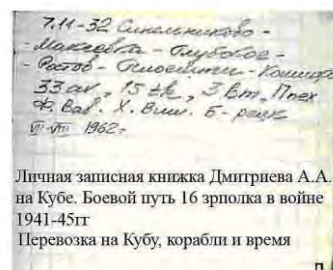 7.11-32 Синельниково -
- Макеевка - Глубокое -
- Ростов - Плоешти - Кошице
33 ак, 15 тк, 3 Вт,
Ф. Вал. Х. Вил. Б-
VI-VIII 1962г
Личная записная книжка Дмитриева А.А.
на Кубе. Боевой путь 16 зрполка в войне
1941-45гг
Перевозка на Кубу, корабли и время